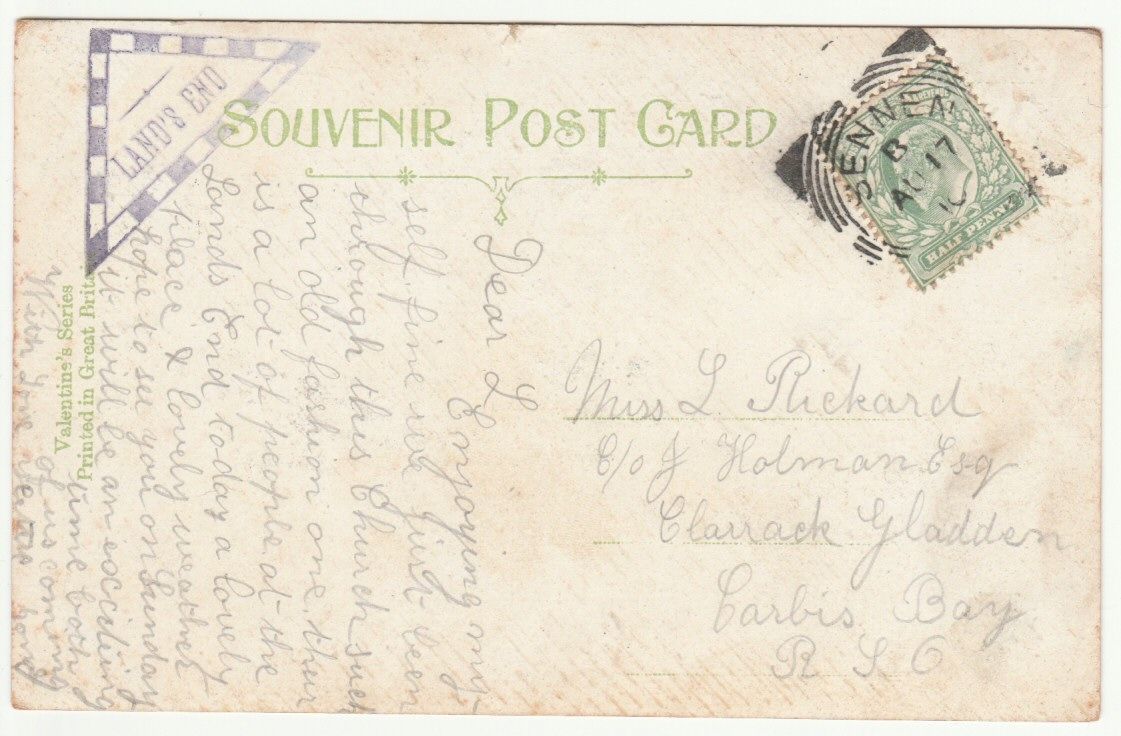 LAND'S END
SOUVENIR POST CARD
SENNEN
B
AU 17
10
HALF PENNY
Valentine's Series
Printed in Great Brita
Dear L
Enjoying my-
self fine we just been
through this Church such
an old fashion one, their
is a lot of people at the
Lands End today a lovely
place & lovely weather
hope to see you on Sunday
it will be an exciting
time both
of us coming
With love
Miss L Rickard
C/o J Holman Esq
Clarrack Gladden
Carbis Bay
R S O